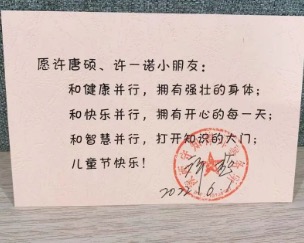 愿许唐硕、许一诺小朋友：
和健康并行，拥有强壮的身体；
和快乐并行，拥有开心的每一天；
和智慧并行，打开知识的大门；
儿童节快乐！
2022.6.1